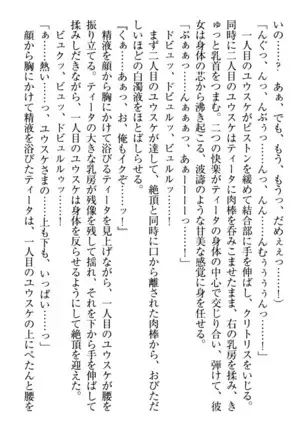 いの……？　あぁ、でも、もう、もうっ、だめぇぇっ……！
「んぐっ、んっ、んぶぅっ……んっ、んっ……んむぅうぅぅんっ……
っ！」
　一人目のユウスケがピストンを緩めて結合部に手を伸ばし、クリトリスをいじる。
同時に二人目のユウスケはティータに肉棒を呑みこませたまま、右の乳房を揉み、き
ゅっと乳首をつまむ。二つの快楽がティータの身体の中心で交じり合い、弾けて、彼
女は身体の芯から沸き起こる、波濤のような甘美な感覚に身を任せる。
「ぷぁぁっ……んぁぁぁぁっ、あぁーーーーっ……！」
　ドビュッ、ビュッ、ドビュルルッ……！
　まず二人目のユウスケが達して、絶頂と同時に口から離された肉棒から、おびただ
しいほどの白濁液をほとばしらせる。
「くぁ……あぁっ、お、俺もイクぞ……ッ！」
　精液を顔から胸にかけて浴びるティータを見上げながら、一人目のユウスケが腰を
振り立てる。ティータの大きな乳房が残像を残して揺れ、それを下から手を伸ばして
揉みしだきながら、一人目のユウスケは身体を反らせるようにして絶頂を迎えた。
　ビュクッ、ビュッ、ドビュルルッ……！
「ぁ……熱い……っ、ユウスケさまの……上も下も、いっぱい……っ」
　顔から胸にかけて精液を浴びたティータは、一人目のユウスケの上にぺたんと腰を